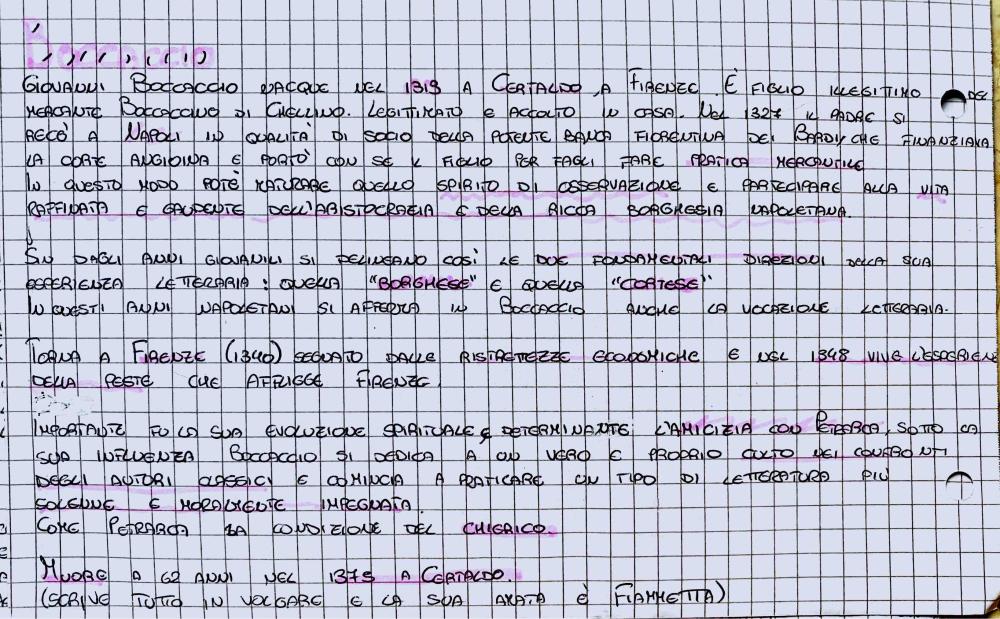 Boccaccio
GIOVANNI BOCCACCIO NACQUE NEL 1313 A CERTALDO, A FIRENZE. È FIGLIO ILLEGITTIMO DEL
MERCANTE BOCCACCINO DI CHELLINO. LEGITTIMATO E ACCOLTO IN CASA. NEL 1327 IL PADRE SI
RECÒ A NAPOLI IN QUALITÀ DI SOCIO DELLA POTENTE BANCA FIORENTINA DEI BARDI, CHE FINANZIAVA
LA CORTE ANGIOINA E PORTÒ CON SE IL FIGLIO PER FAGLI FARE PRATICA MERCANTILE
IN QUESTO MODO POTÈ MATURARE QUELLO SPIRITO DI OSSERVAZIONE E PARTECIPARE ALLA VITA
RAFFINATA E GAUDENTE DELL'ARISTOCRAZIA E DELLA RICCA BORGHESIA NAPOLETANA.
SIN DAGLI ANNI GIOVANILI SI DELINEANO COSÌ LE DUE FONDAMENTALI DIREZIONI DELLA SUA
ESPERIENZA LETTERARIA: QUELLA "BORGHESE" E QUELLA "CORTESE"
IN QUESTI ANNI NAPOLETANI SI AFFERMA IN BOCCACCIO ANCHE LA VOCAZIONE LETTERARIA.
TORNA A FIRENZE (1340) SEGNATO DALLE RISTRETTEZZE ECONOMICHE E NEL 1348 VIVE L'ESPERIEN
DELLA PESTE CHE AFFLIGGE FIRENZE.
IMPORTANTE FU LA SUA EVOLUZIONE SPIRITUALE E DETERMINANTE L'AMICIZIA CON PETRARCA, SOTTO LA
SUA INFLUENZA BOCCACCIO SI DEDICA A UN VERO E PROPRIO CULTO NEI CONFRONTI
DEGLI AUTORI CLASSICI E COMINCIA A PRATICARE UN TIPO DI LETTERATURA PIÙ
SOLENNE E MORALMENTE IMPEGNATA.
COME PETRARCA HA CONDIZIONE DEL CHIERICO.
MUORE A 62 ANNI NEL 1375 A CERTALDO.
(SCRIVE TUTTO IN VOLGARE E LA SUA AMATA È FIAMMETTA)